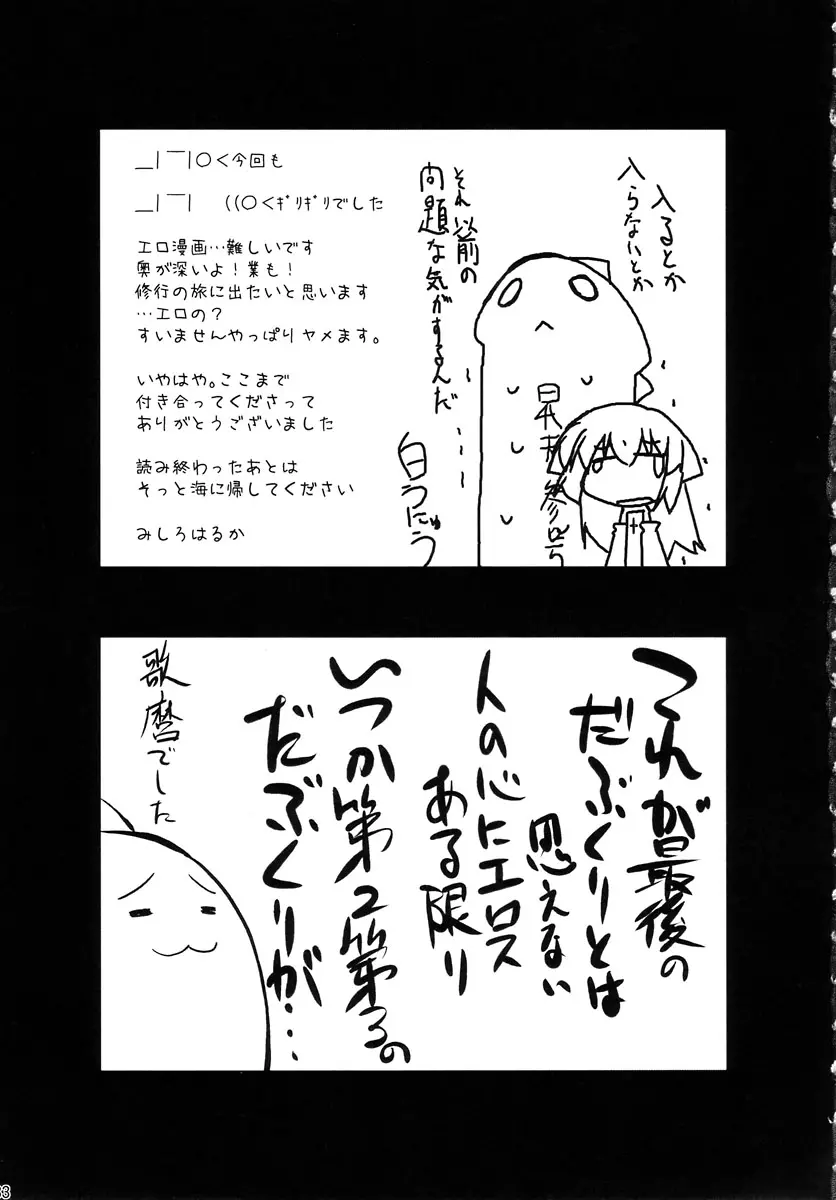 ＿|￣|○＜今回も
＿|￣|　((○＜ｷﾞﾘｷﾞﾘでした
エロ漫画…難しいです
奥が深いよ！業も！
修行の旅に出たいと思います
…エロの？
すいませんやっぱりヤメます。
いやはや。ここまで
付き合ってくださって
ありがとうございました
読み終わったあとは
そっと海に帰してください
みしろはるか
入るとか
入らないとか
それ以前の
問題な気がするんだ…
白うにゅう
これが最後の
だぶくりとは
思えない
人の心にエロス
ある限り
いつか第2第3の
だぶくりが…
歌麿でした